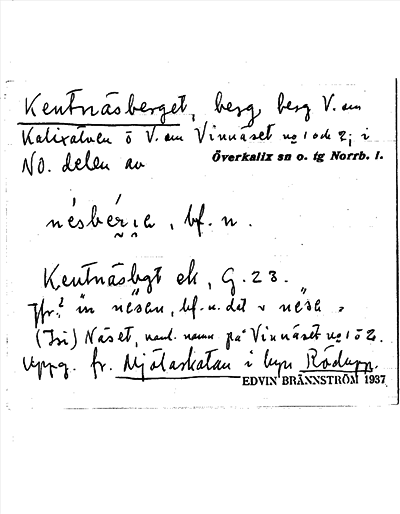 Kentnäsberget, berg, berg V. om
Kalixälven ö V. om Vinnäset no 1 och 2; i
NO. delen av
Överkalix sn o. tg Norrb. l.
nésbérıa, bf. n.
Kentnäsbgt ek, G. 23.
Jfr.² in nesen, bf. n. det
Näset, namn på Vinnäset no 1 o 2.
Uppg. fr. Mjölaskatan i byn Rödupp.
EDVIN BRÄNNSTRÖM 1937